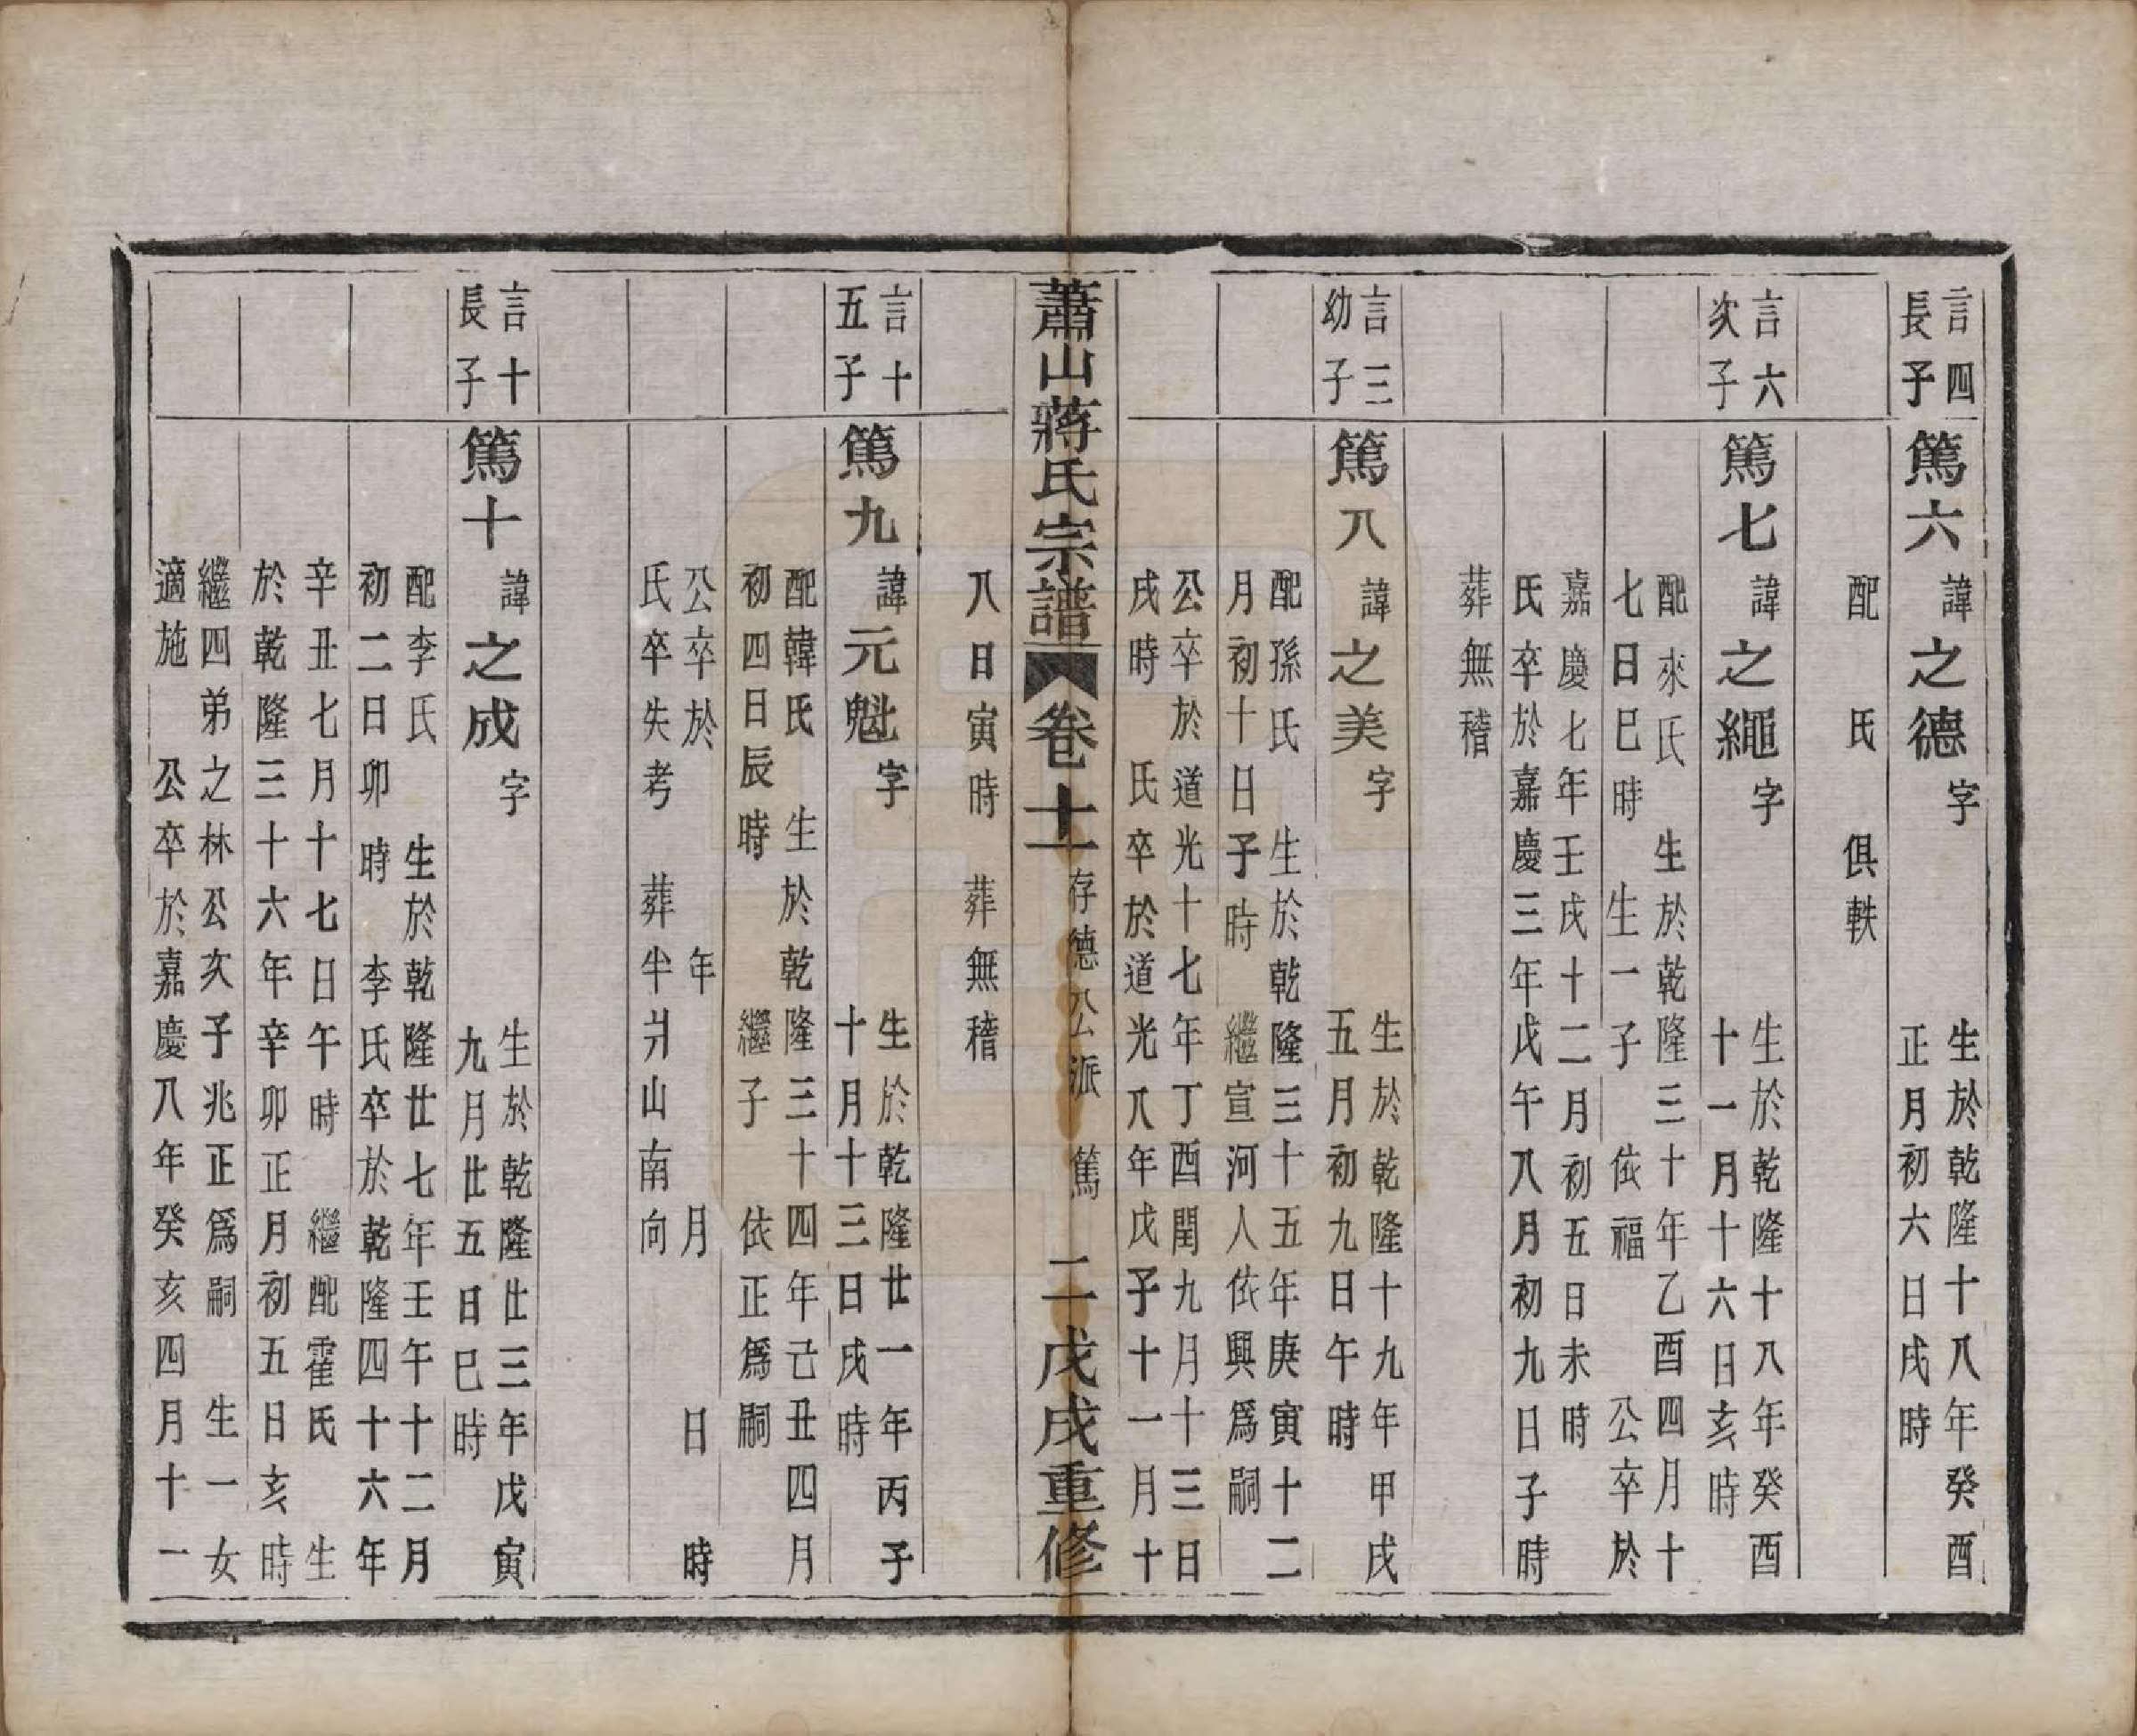 言四
長子
篤六
諱之德字
生於乾隆十八年癸酉
正月初六日戌時
配 氏 俱軼
言六
次子
篤七
諱之繩字
生於乾隆十八年癸酉
十一月十六日亥時
配來氏 生於乾隆三十年乙酉四月十
七日巳時 生一子 依福 公卒於
嘉慶七年壬戌十二月初五日未時
氏卒於嘉慶三年戊午八月初九日子時
葬無稽
言三
幼子
篤八
諱之美字
生於乾隆十九年甲戌
五月初九日午時
配孫氏 生於乾隆三十五年庚寅十二
月初十日子時 繼宣河人依興爲嗣
公卒於道光十七年丁酉閏九月十三日
戌時 氏卒於道光八年戊子十一月十
蕭山蔣氏宗譜 卷十一 存德公派 篤 二 戊戌重修
八日寅時 葬無稽
言十
五子
篤九
諱元魁字
生於乾隆廿一年丙子
十月十三日戌時
配韓氏 生於乾隆三十四年己丑四月
初四日辰時 繼子 依正爲嗣
公卒於 年 月 日 時
氏卒失考 葬半爿山南向
言十
長子
篤十
諱之成字
生於乾隆廿三年戊寅
九月廿五日巳時
配李氏 生於乾隆廿七年壬午十二月
初二日卯時 李氏卒於乾隆四十六年
辛丑七月十七日午時 繼配霍氏 生
於乾隆三十六年辛卯正月初五日亥時
繼四弟之林公次子兆正爲嗣 生一女
適施 公卒於嘉慶八年癸亥四月十一